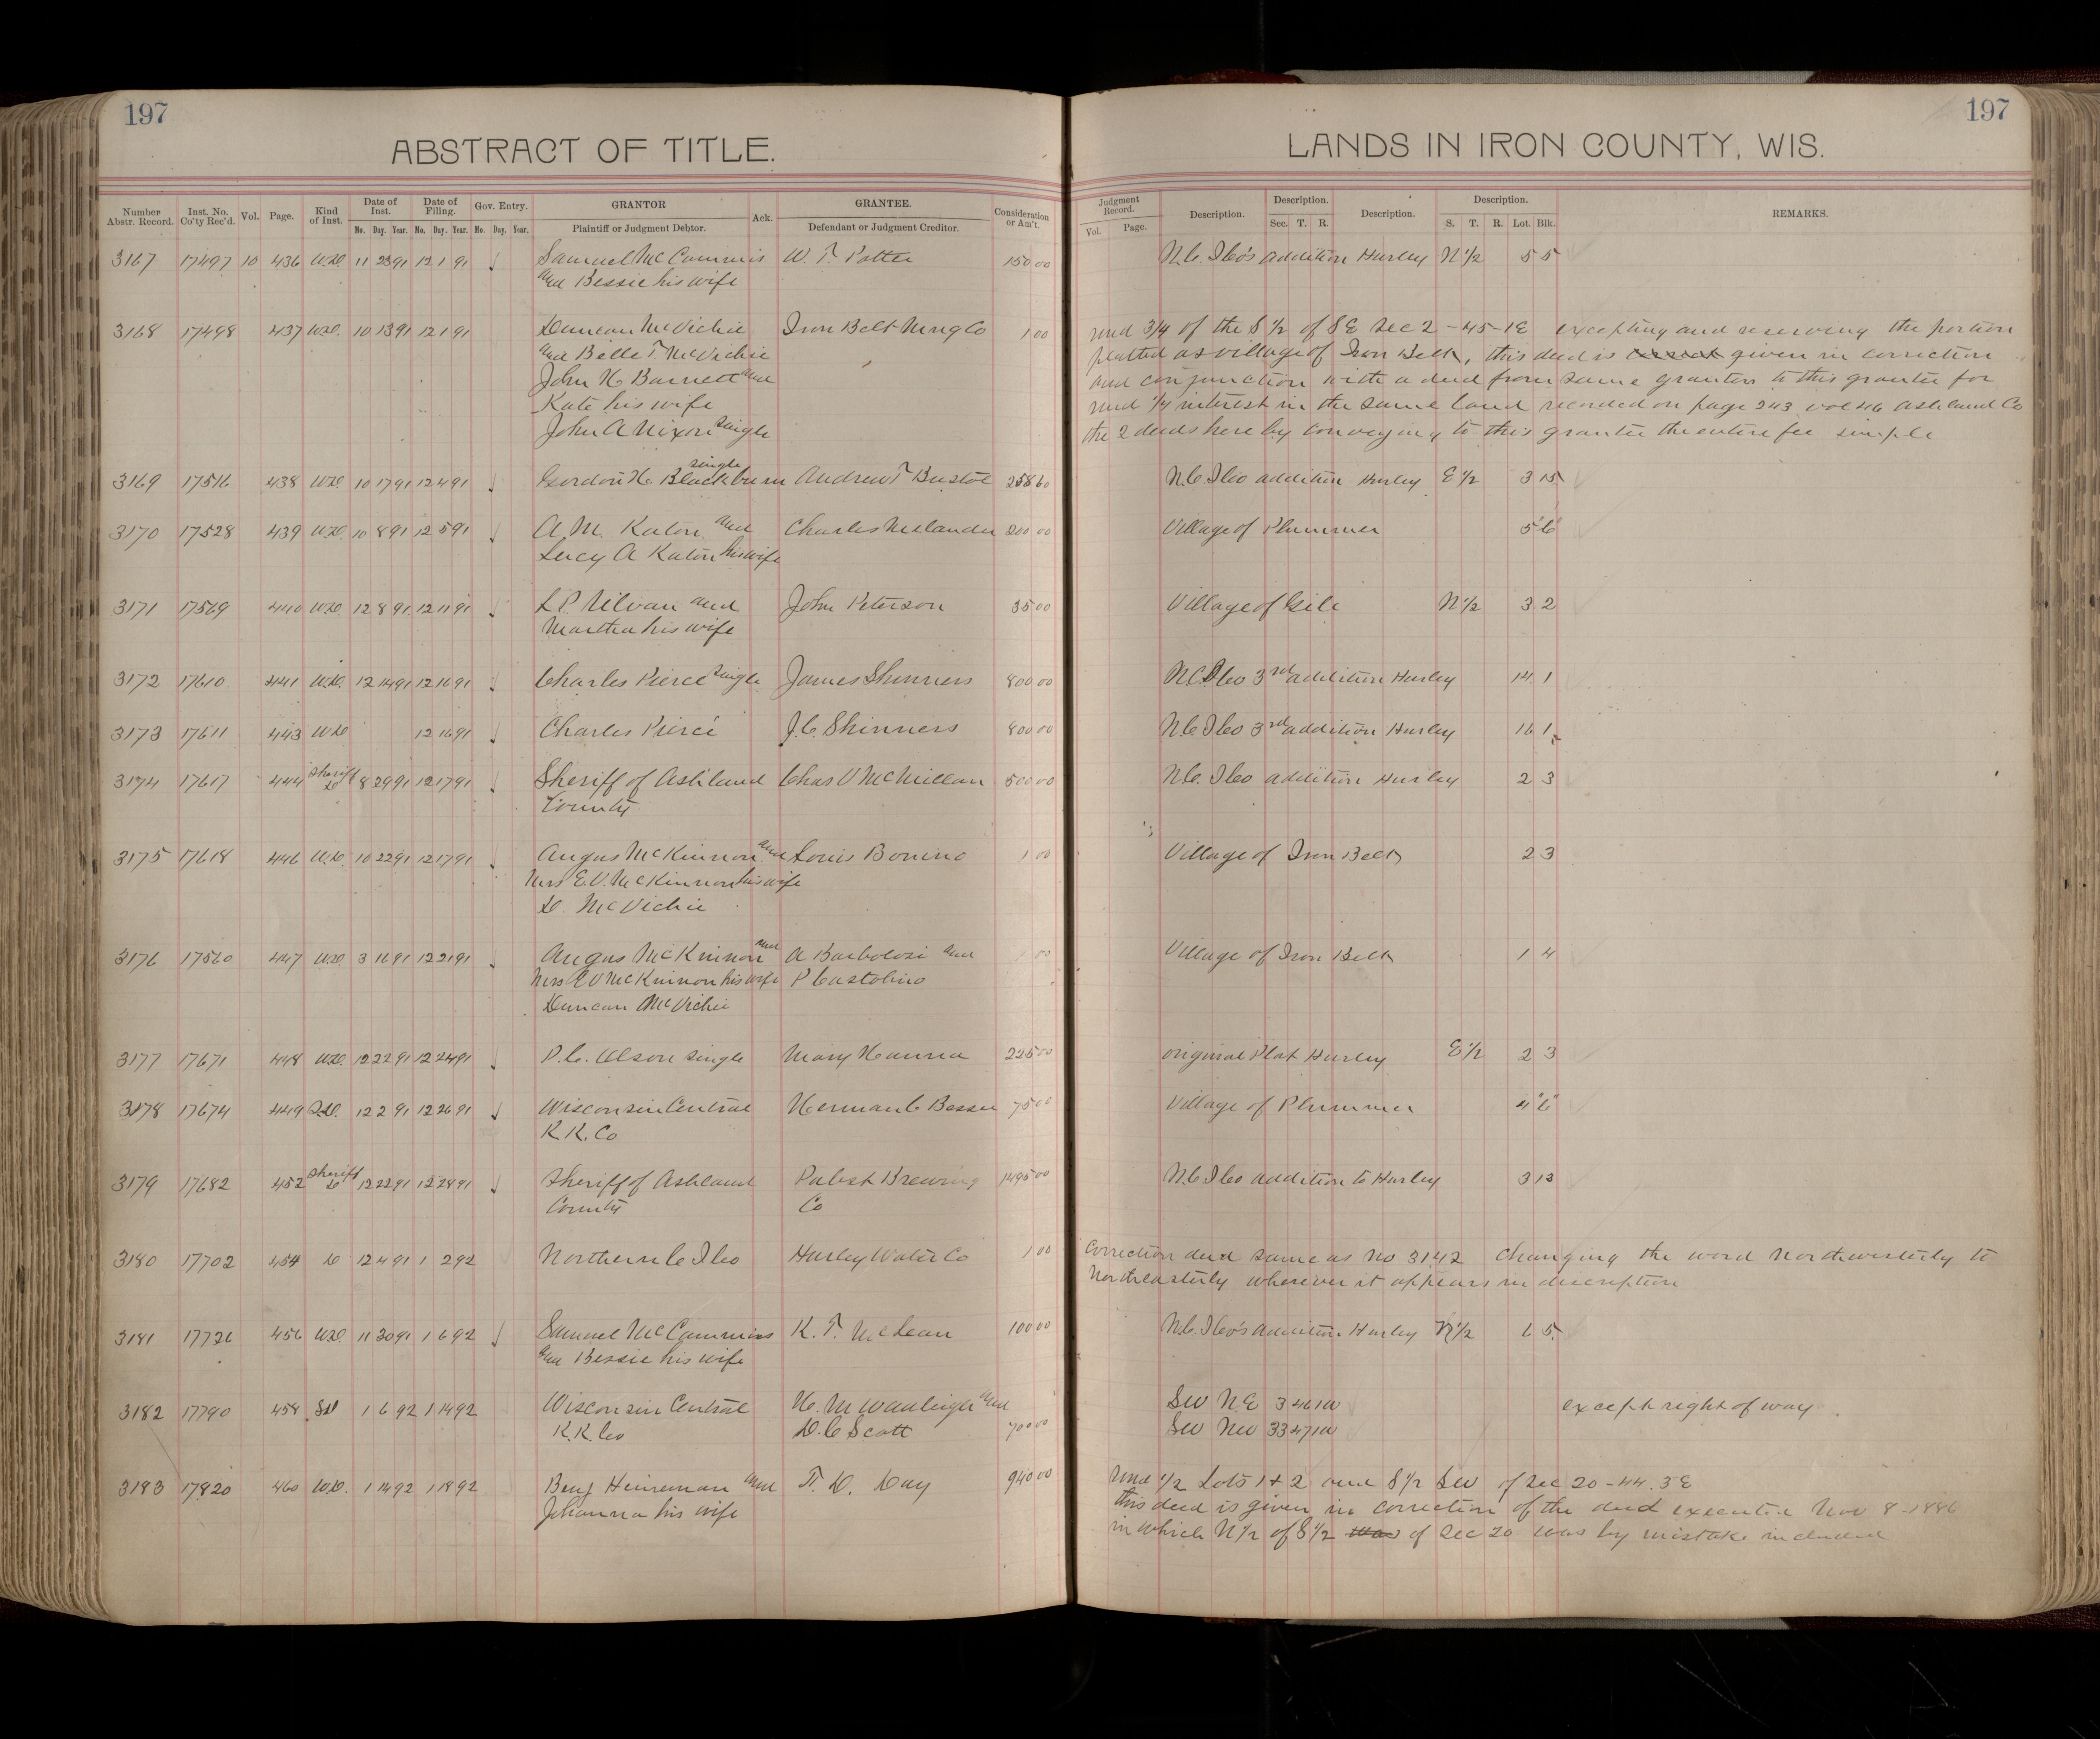 197
ABSTRACT OF TITLE.
197
LANDS IN IRON COUNTY, WIS.
Number Abstr. Record. Inst. No. Co'ty Rec'd. Vol. Page. Kind of Inst. Date of Inst. Mo. Day. Year. Date of Filing. Mo. Day. Year. Gov. Entry. Mo. Day. Year. GRANTOR Plaintiff or Judgment Debtor. Ack. GRANTEE. Defendant or Judgment Creditor. Consideration or Am't.
Judgment Record. Vol. Page. Description. Description. Sec. T. R. Description. Description. S. T. R. Lot. Blk. REMARKS.
3167 17497 10 436 W.D. 11 23 91 12 1 91 Samuel McCammis W. T. Potter 150 00 N.C.I.Co's addition Hurley N 1/2 5 5
and Bessie his wife
3168 17498 437 W.D. 10 13 91 12 1 91 Duncan McVichie Iron Belt Mng Co 1 00 und 3/4 of the S 1/2 of SE Sec 2 -45-1E excepting and reserving the portion
and Belle T McVichie platted as village of Iron Belt, this deed is given in correction
John H Barnett and and conjunction with a deed from same grantors to this grantee for
Kate his wife und 1/4 interest in the same land recorded on page 243 vol 46 Ashland Co
John A Nixon single the 2 deeds hereby conveying to this grantee the entire fee simple
3169 17516 438 W.D. 10 17 91 12 4 91 Gordon H. Blackburn single Andrew T 258 60 N.C.I.Co addition Hurley E 1/2 3 15
3170 17528 439 W.D. 10 8 91 12 5 91 A. M. Katon and Charles Melander 200 00 Village of Plummer 5 "6"
Lucy A Katon his wife
3171 17569 440 W.D. 12 8 91 12 11 91 L. P. and John Peterson 35 00 Village of Gile N 1/2 3 2
Martha his wife
3172 17610 441 W.D. 12 14 91 12 16 91 Charles Pierce single James Shinners 800 00 N.C.I.Co 3rd addition Hurley 14 1
3173 17611 443 W.D. 12 16 91 Charles Pierce J. C. Shinners 800 00 N.C.I.Co 3rd addition Hurley 16 1
3174 17617 444 Sheriff D 8 29 91 12 17 91 Sheriff of Ashland Chas V McMillan 500 00 N.C.I.Co addition Hurley 2 3
County
3175 17618 446 W.D. 10 22 91 12 17 91 Angus McKinnon and Louis Bonino 1 00 Village of Iron Belt 2 3
Mrs E. V. McKinnon his wife
D. McVichie
3176 17560 447 W.D. 3 16 91 12 21 91 Angus McKinnon and A Barbolosi and 1 00 Village of Iron Belt 1 4
Mrs E V McKinnon his wife P Castolino
Duncan McVichie
3177 17671 448 W.D. 12 22 91 12 24 91 P. C. Olson single Mary Hanna 225 00 original Plat Hurley E 1/2 2 3
3178 17674 449 12 2 91 12 26 91 Wisconsin Central Herman C Besser 75 00 Village of Plummer 4 "6"
R.R. Co
3179 17682 452 Sheriff D 12 22 91 12 28 91 Sheriff of Ashland Pabst Brewing 1495 00 N.C.I.Co addition to Hurley 3 13
County Co
3180 17702 454 D 12 4 91 1 2 92 Northern C I Co Hurley Water Co 1 00 Correction deed same as No 3142 changing the word Northwesterly to
Northeasterly wherever it appears in description
3181 17726 456 W.D. 11 30 91 1 6 92 Samuel McCammins K. T. McLean 100 00 N.C.I.Co's addition Hurley N 1/2 6 5
and Bessie his wife
3182 17790 458 1 6 92 1 14 92 Wisconsin Central H. M and SW NE 3 46 1W except right of way
R.R. Co D. C Scott 700 00 SW NW 33 47 1W
3183 17820 460 W.D. 1 14 92 1 18 92 Benj Heineman and T. D. Day 940 00 und 1/2 Lots 1 + 2 and S 1/2 SW of Sec 20 - 44. 3E
Johanna his wife this deed is given in correction of the deed executed Nov 8 -1886
in which N 1/2 of S 1/2 of Sec 20 was by mistake included